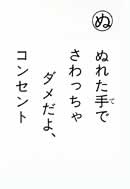 ぬ
ぬれた手で
さわっちゃ
ダメだよ、
コンセント